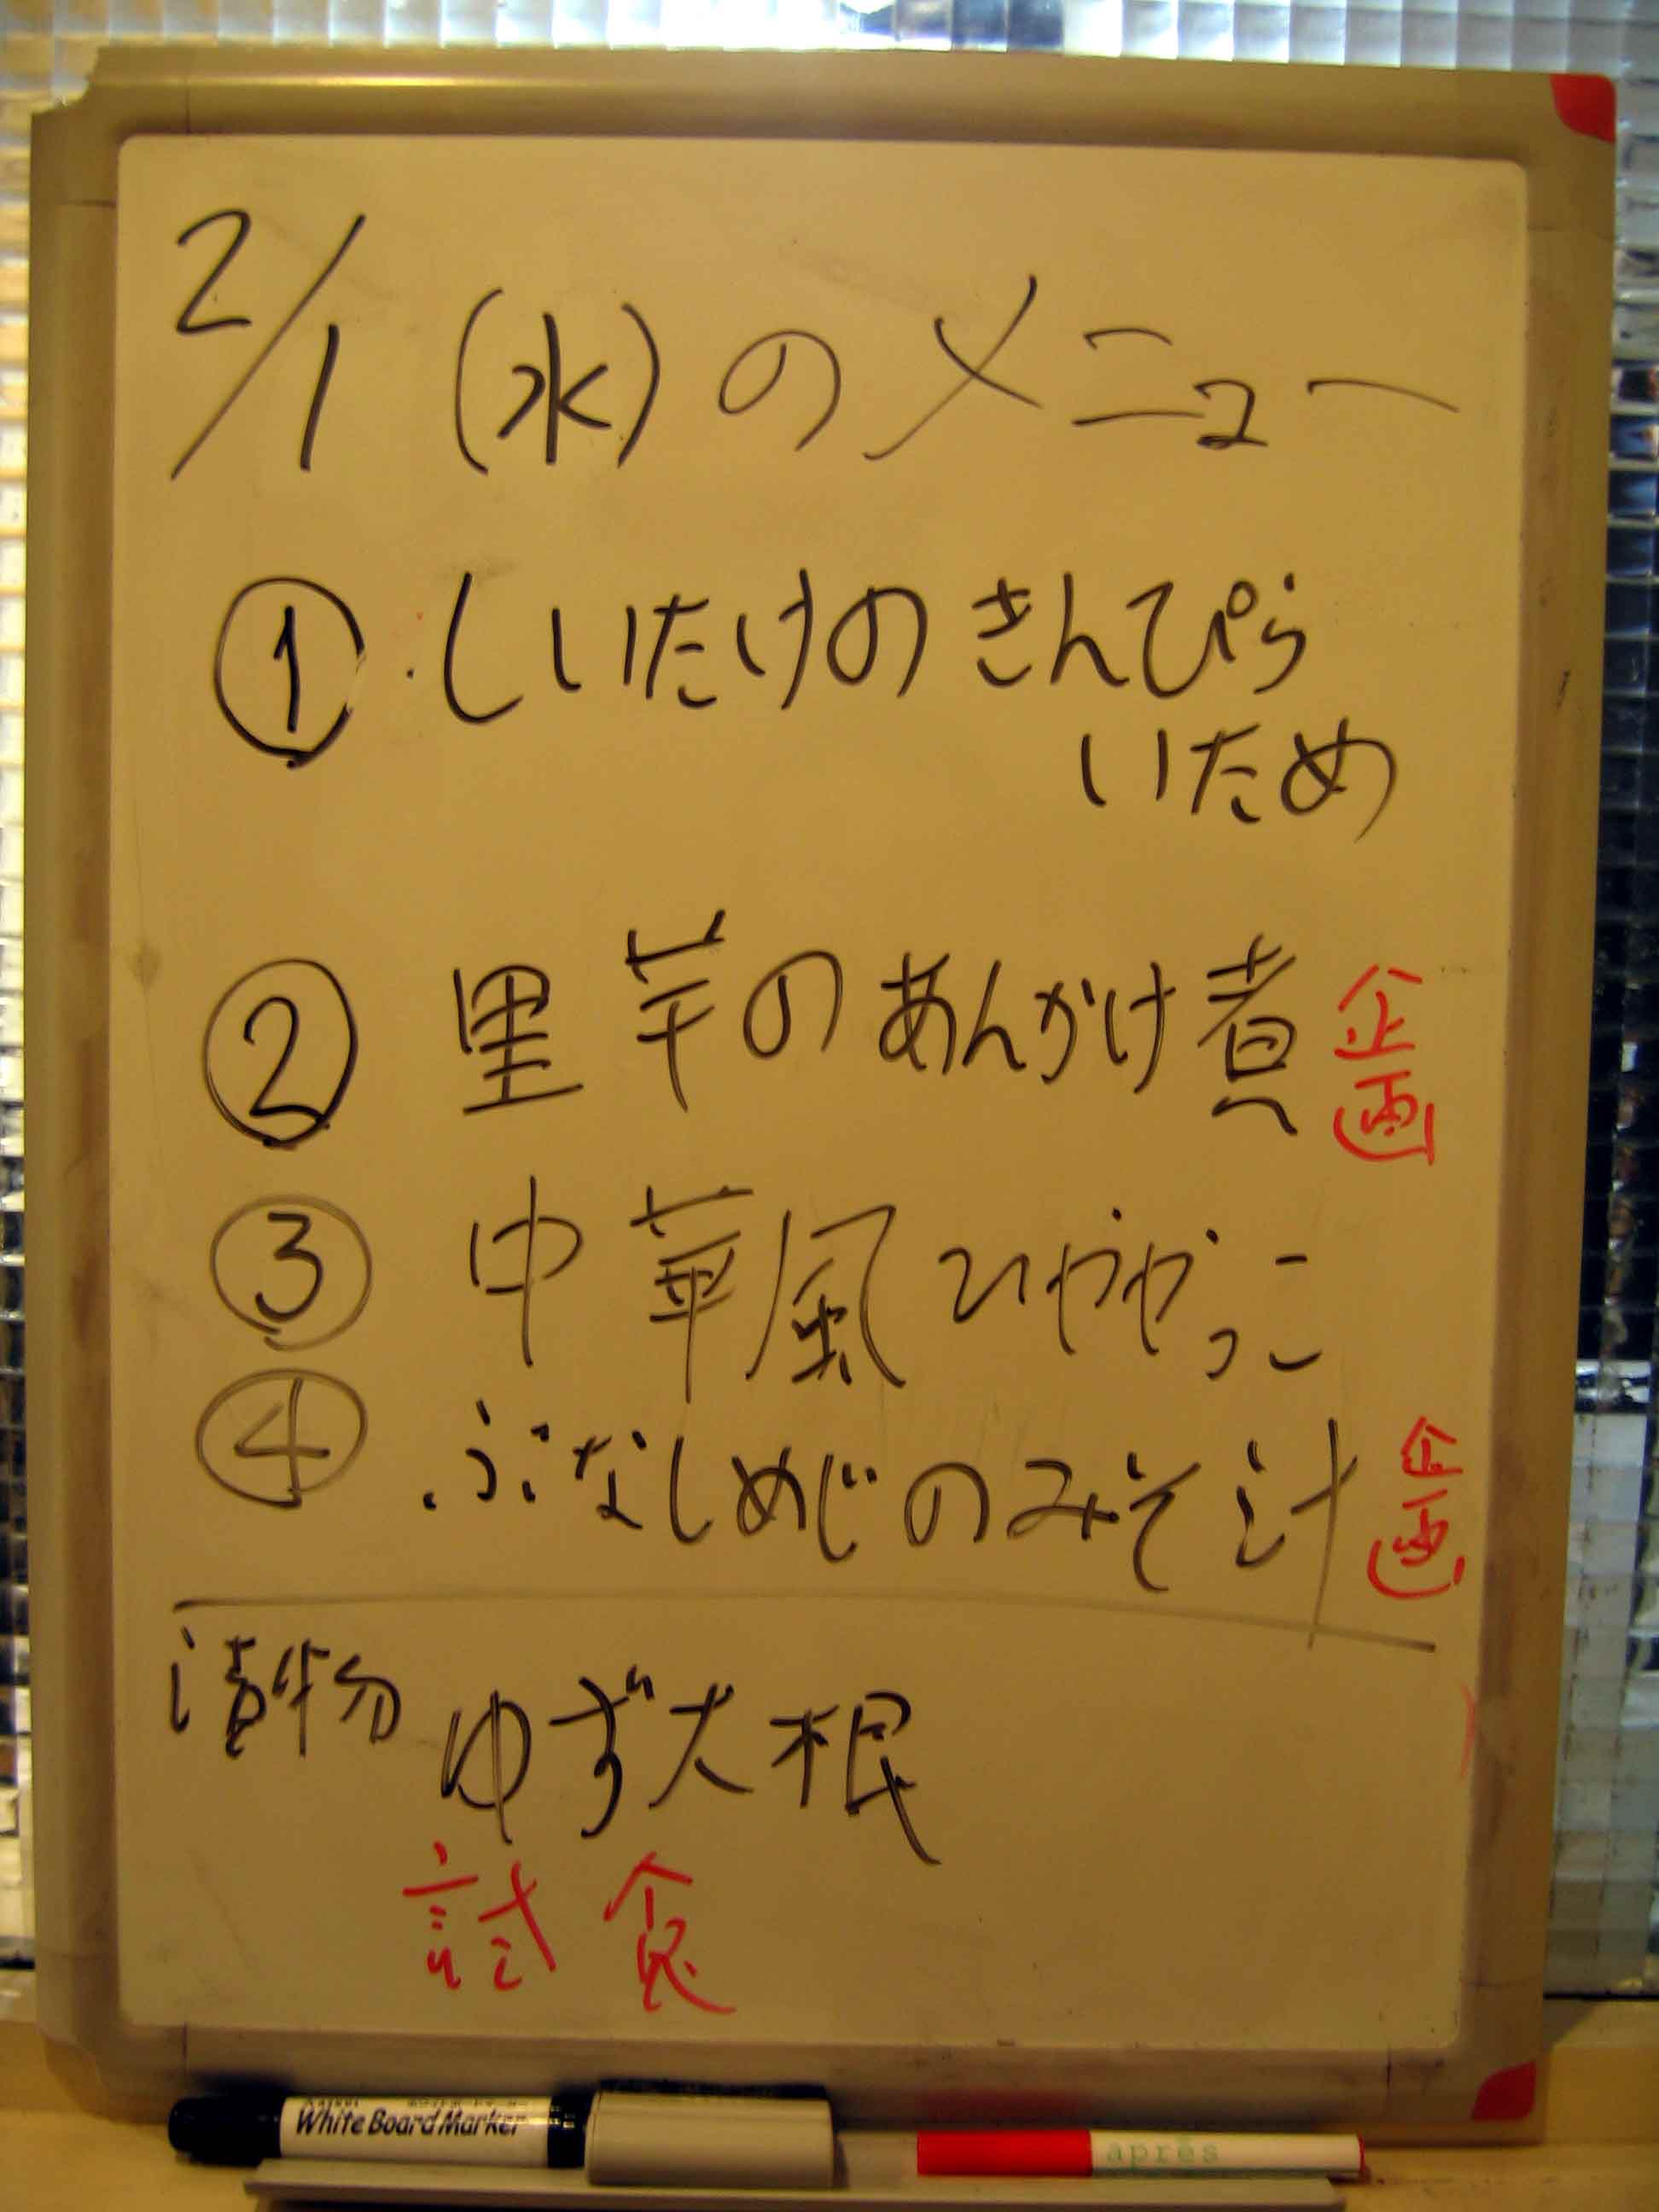 2/1 (水)のメニュー
① しいたけのきんぴら
いため
② 里芋のあんかけ煮 企画
③ 中華風ひややっこ
④ ぶなしめじのみそ汁 企画
漬物 ゆず大根
試食
White Board Marker
après